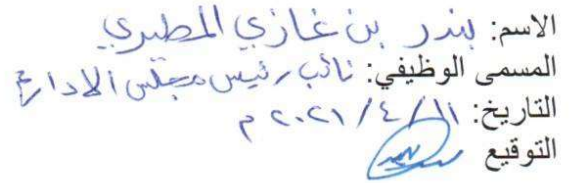 الاسم: بندر بن غازي المطيري
المسمى الوظيفي: نائب رئيس مجلس الادارة
التاريخ: ١١/٤/٢٠٢١ م
التوقيع